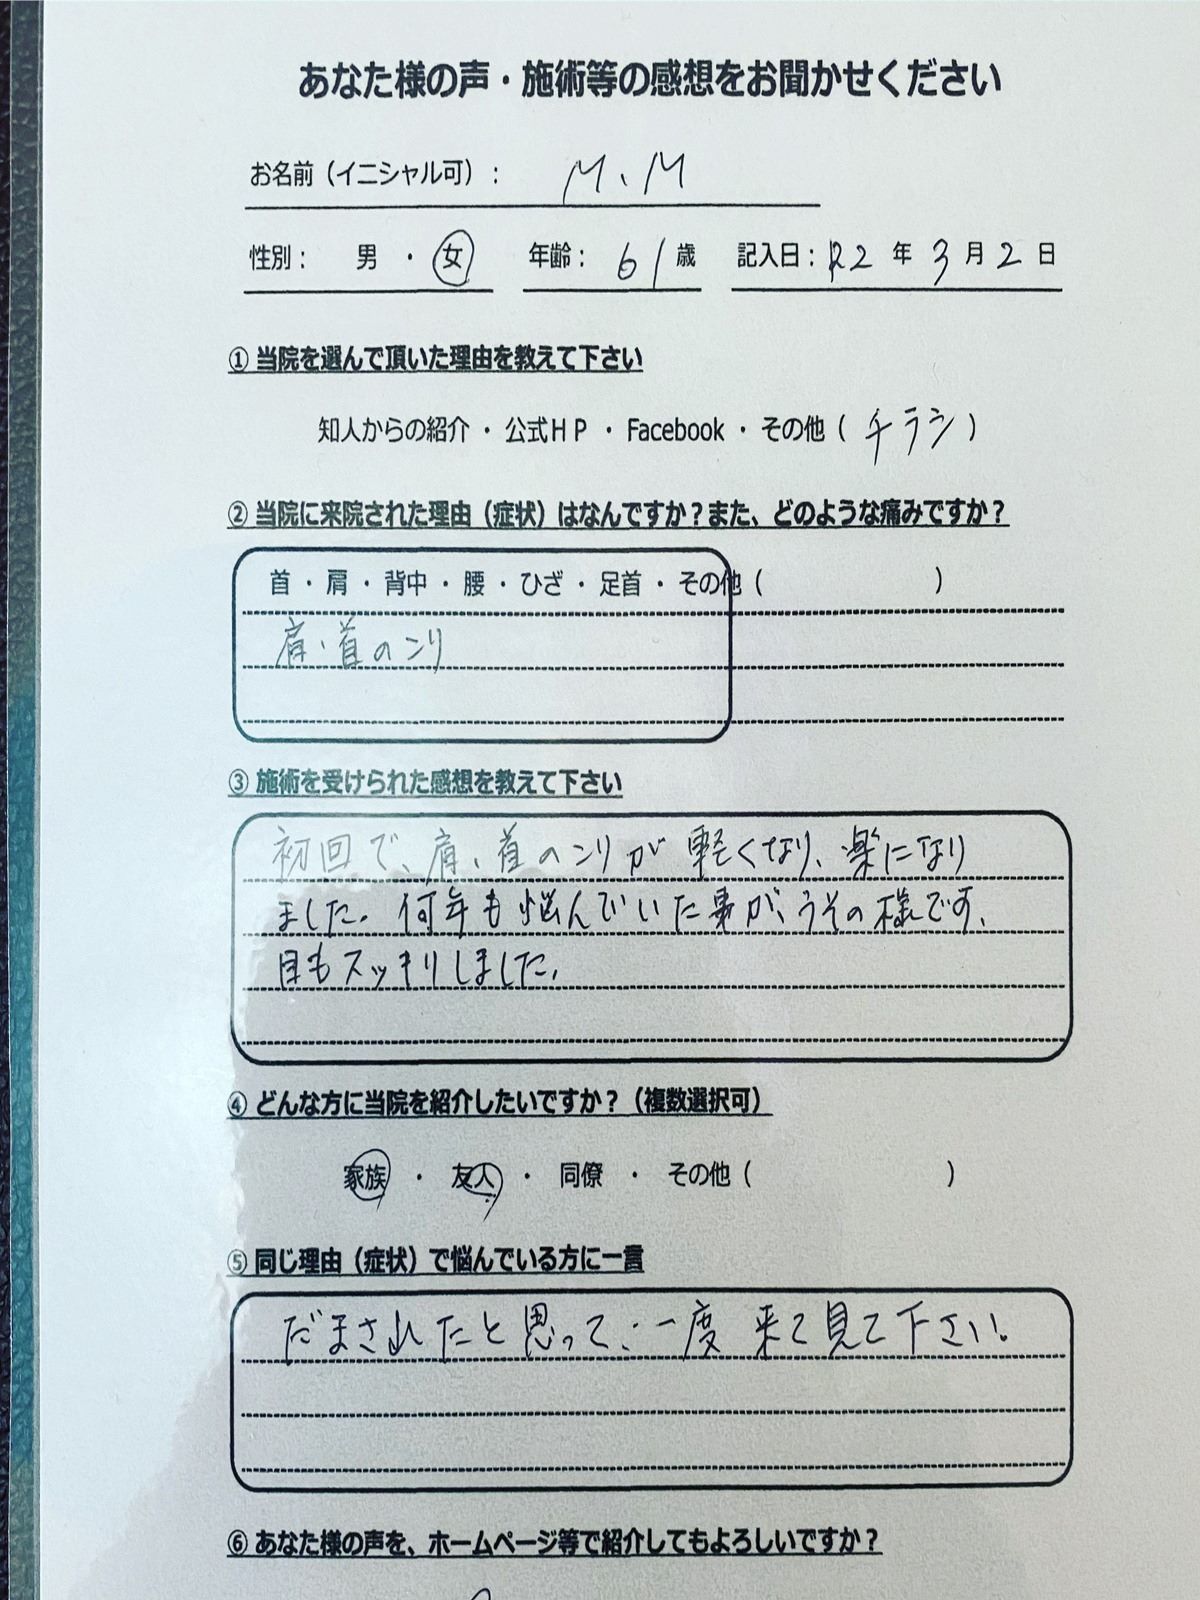 あなた様の声・施術等の感想をお聞かせください
お名前（イニシャル可）： M、M
性別： 男 ・ 女 年齢： 61 歳 記入日：R2 年 3 月 2 日
① 当院を選んで頂いた理由を教えて下さい
知人からの紹介 ・ 公式ＨＰ ・ Facebook ・ その他（ チラシ ）
② 当院に来院された理由（症状）はなんですか？また、どのような痛みですか？
首 ・ 肩 ・ 背中 ・ 腰 ・ ひざ ・ 足首 ・ その他（ ）
肩・首のコリ
③ 施術を受けられた感想を教えて下さい
初回で、肩、首のコリが軽くなり、楽になり
ました。何年も悩んでいた事が、うその様です。
目もスッキリしました。
④ どんな方に当院を紹介したいですか？（複数選択可）
家族 ・ 友人 ・ 同僚 ・ その他（ ）
⑤ 同じ理由（症状）で悩んでいる方に一言
だまされたと思って、一度来て見て下さい。
⑥ あなた様の声を、ホームページ等で紹介してもよろしいですか？